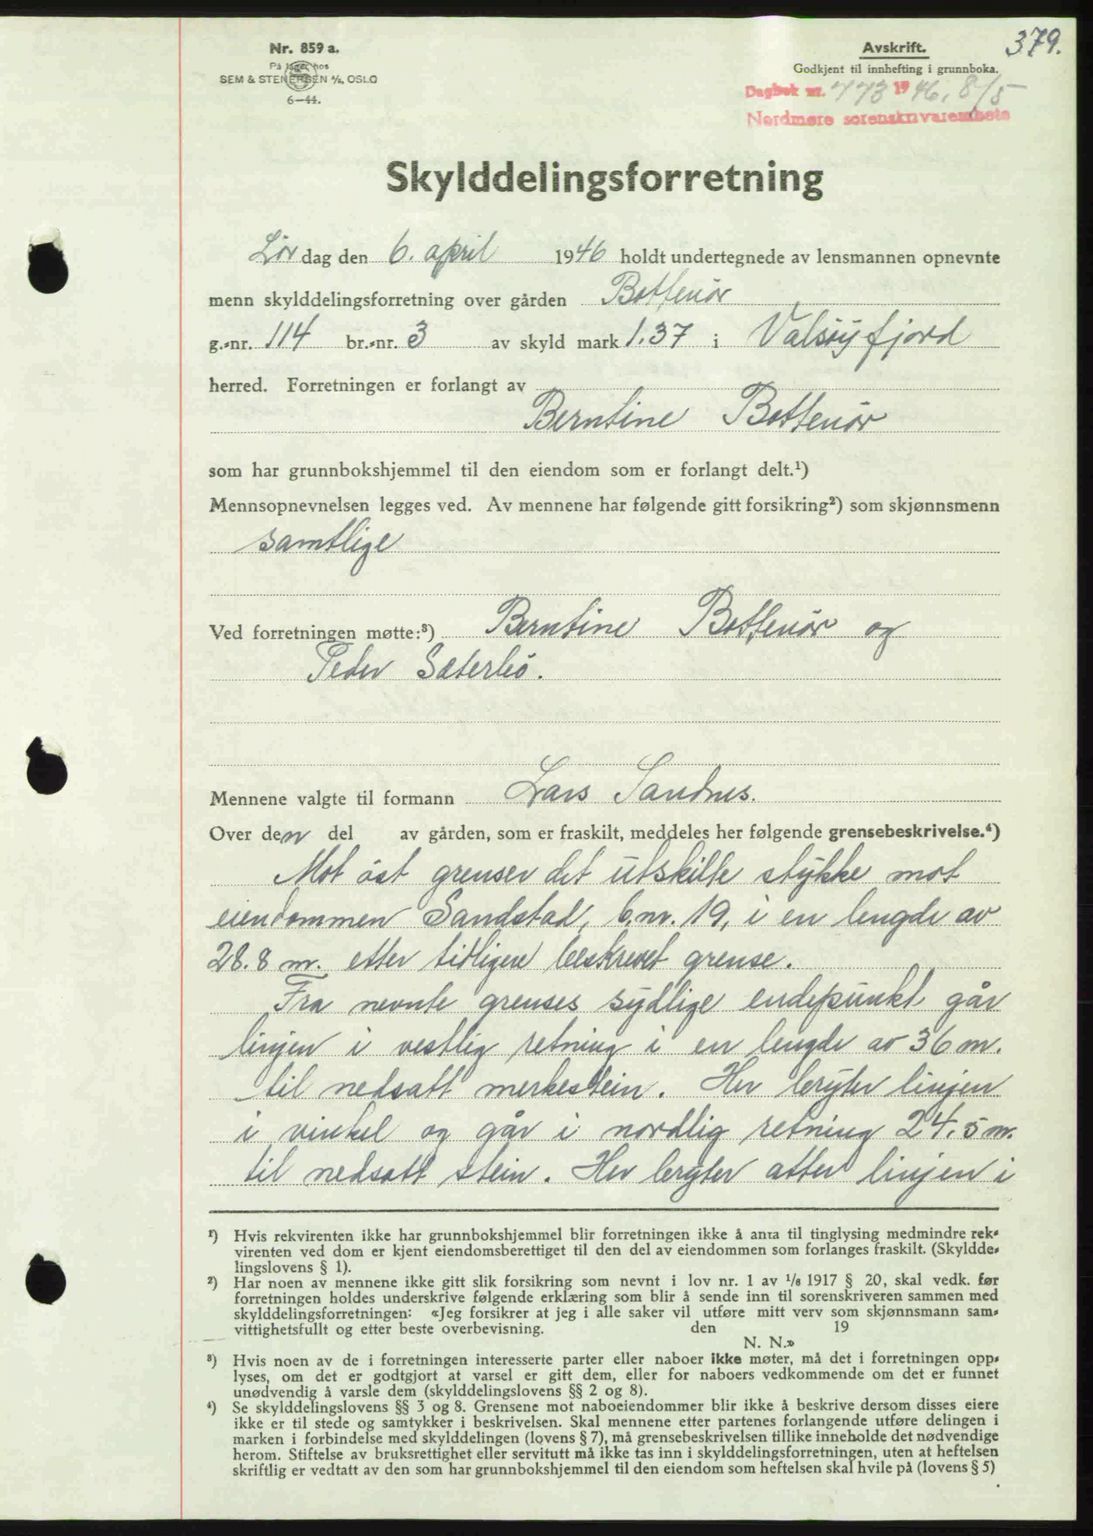 Nr. 859 a.
På lager hos
SEM & STENERSEN A/S, OSLO
6—44.
Avskrift.
379.
Godkjent til innhefting i grunnboka.
Dagbok nr. 773 1946, 8/5
Nordmøre sorenskriverembete
Skylddelingsforretning
Lørdag den 6. april 1946 holdt undertegnede av lensmannen opnevnte
menn skylddelingsforretning over gården Bottenör
g.-nr. 114 br.-nr. 3 av skyld mark 1.37 i Valsöyfjord
herred. Forretningen er forlangt av
Berntine Bottenör
som har grunnbokshjemmel til den eiendom som er forlangt delt.¹)
Mennsopnevnelsen legges ved. Av mennene har følgende gitt forsikring²) som skjønnsmenn
samtlige
Ved forretningen møtte:³) Berntine Bottenör og
Peder Sæterbö.
Mennene valgte til formann Lars Sandnes.
Over den del av gården, som er fraskilt, meddeles her følgende grensebeskrivelse.⁴)
Mot öst grenser det utskilte stykke mot
eiendommen Sandstad, b.nr. 19, i en lengde av
28.8 m. etter tidligere beskrevet grense.
Fra nevnte grenses sydlige endepunkt går
linjen i vestlig retning i en lengde av 36 m.
til nedsatt merkestein. Her bryter linjen
i vinkel og går i nordlig retning 24.5 m.
til nedsatt stein. Her bryter atter linjen i
¹) Hvis rekvirenten ikke har grunnbokshjemmel blir forretningen ikke å anta til tinglysing medmindre rek-
virenten ved dom er kjent eiendomsberettiget til den del av eiendommen som forlanges fraskilt. (Skyldde-
lingslovens § 1).
²) Har noen av mennene ikke gitt slik forsikring som nevnt i lov nr. 1 av 1/6 1917 § 20, skal vedk. før
forretningen holdes underskrive følgende erklæring som blir å sende inn til sorenskriveren sammen med
skylddelingsforretningen: «Jeg forsikrer at jeg i alle saker vil utføre mitt verv som skjønnsmann sam-
vittighetsfullt og etter beste overbevisning. den 19
N. N.»
³) Hvis noen av de i forretningen interesserte parter eller naboer ikke møter, må det i forretningen opp-
lyses, om det er godtgjort at varsel er gitt dem, eller for naboers vedkommende om det er funnet
unødvendig å varsle dem (skylddelingslovens §§ 2 og 8).
⁴) Se skylddelingslovens §§ 3 og 8. Grensene mot naboeiendommer blir ikke å beskrive dersom disses eiere
ikke er til stede og samtykker i beskrivelsen. Skal mennene etter partenes forlangende utføre delingen i
marken i forbindelse med skylddelingen (lovens § 7), må grensebeskrivelsen tillike inneholde det nødvendige
herom. Stiftelse av bruksrettighet eller servitutt må ikke tas inn i skylddelingsforretningen, uten at heftelsen
skriftlig er vedtatt av den som har grunnbokshjemmel til den eiendom som heftelsen skal hvile på (lovens § 5)